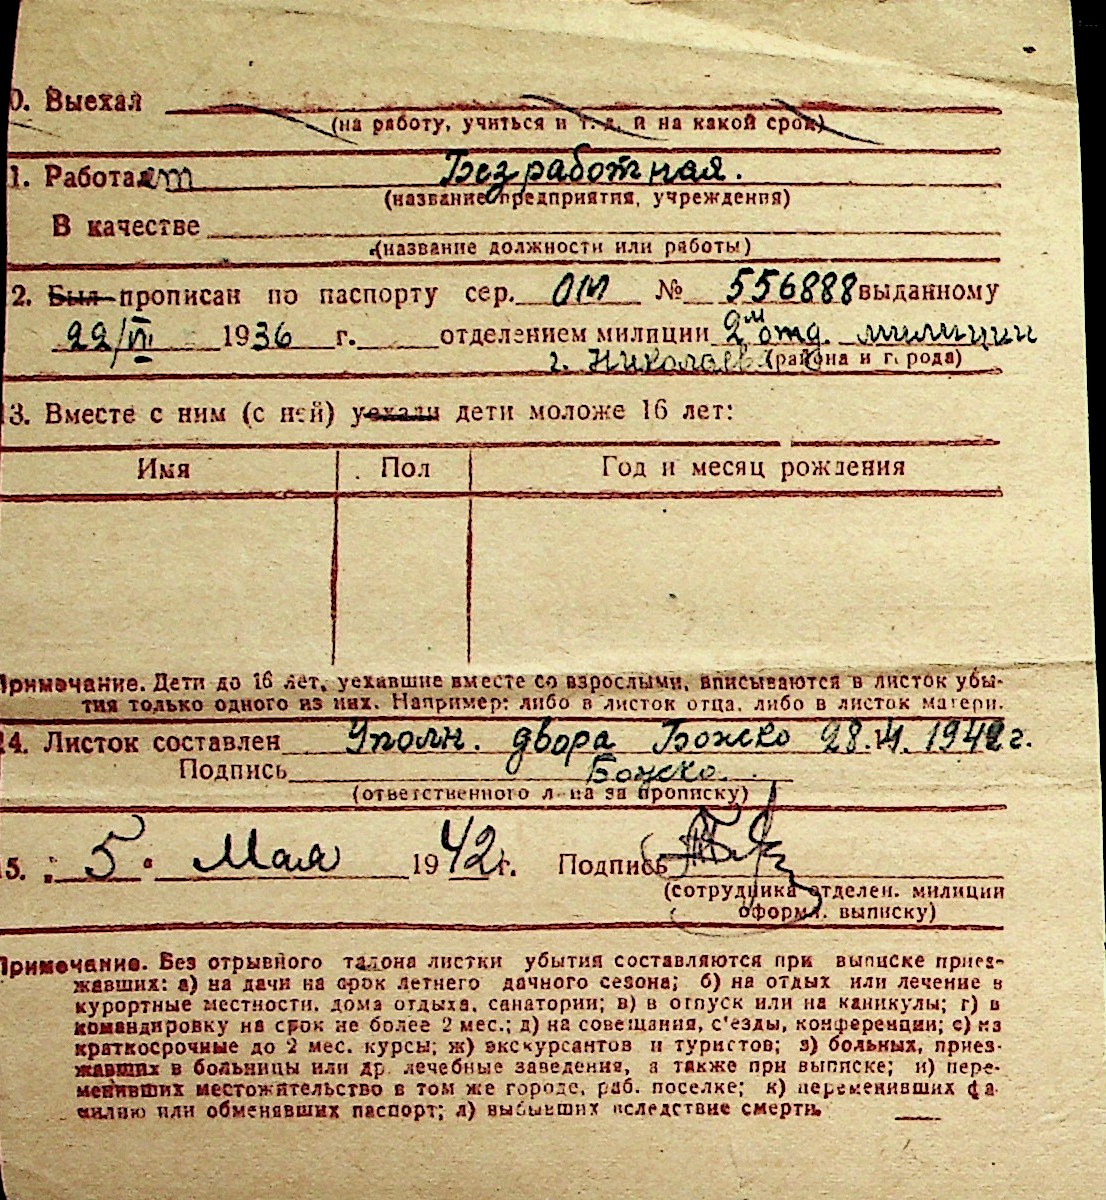 0. Выехал
(на работу, учиться и т. д. и на какой срок)
1. Работает Безработная.
(название предприятия, учреждения)
В качестве
(название должности или работы)
2. Был прописан по паспорту сер. ОМ № 556888 выданному
22/VII 1936 г. отделением милиции 2м отд. милиции
г. Николаев (района и города)
13. Вместе с ним (с ней) уехали дети моложе 16 лет:
Имя Пол Год и месяц рождения
Примечание. Дети до 16 лет, уехавшие вместе со взрослыми, вписываются в листок убы-
тия только одного из них. Например: либо в листок отца, либо в листок матери.
14. Листок составлен Уполн. двора Божко 28. 1942 г.
Подпись Божко.
(ответственного лица за прописку)
15. „5“ Мая 1942 г. Подпись
(сотрудника отделен. милиции
оформл. выписку)
Примечание. Без отрывного талона листки убытия составляются при выписке приез-
жавших: а) на дачи на срок летнего дачного сезона; б) на отдых или лечение в
курортные местности, дома отдыха, санатории; в) в отпуск или на каникулы; г) в
командировку на срок не более 2 мес.; д) на совещания, с'езды, конференции; е) из
краткосрочные до 2 мес. курсы; ж) экскурсантов и туристов; з) больных, приез-
жавших в больницы или др. лечебные заведения, а также при выписке; и) пере-
менивших местожительство в том же городе, раб. поселке; к) переменивших фа-
милию или обменявших паспорт; л) выбывших вследствие смерти.